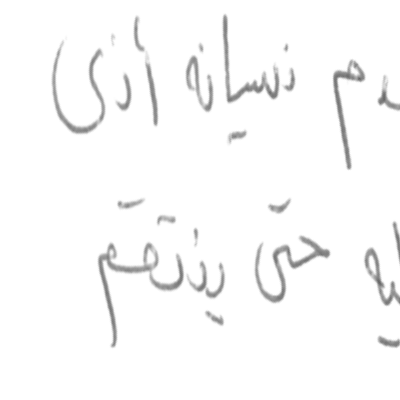 دم نسيانه أذى
يه حتى ينتقم